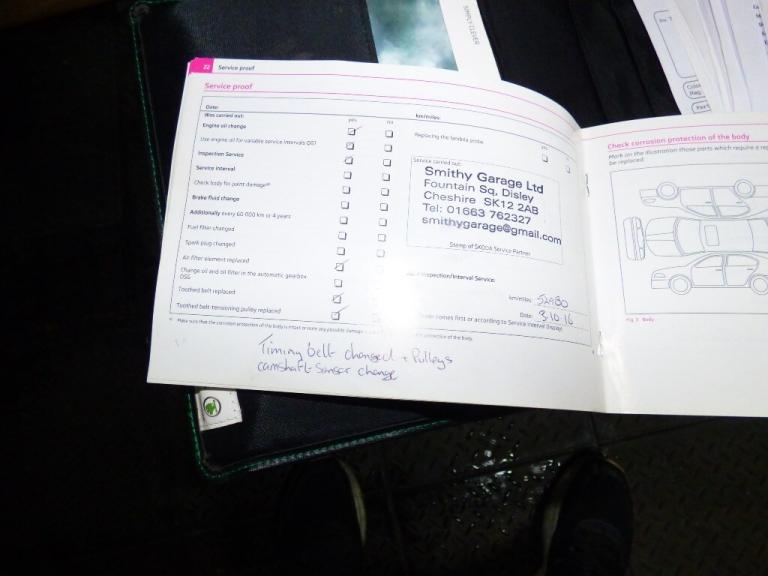 SIMPLY CLEVER
22 Service proof
Service proof
Date:
km/miles:
Was carried out:
yes no
Engine oil change
Use engine oil for variable service intervals QG1
Inspection Service
Service interval
Check body for paint damage
Brake fluid change
Additionally every 60 000 km or 4 years
Fuel filter changed
Spark plug changed
Air filter element replaced
Change oil and oil filter in the automatic gearbox
DSG
Toothed belt replaced
Toothed belt-tensioning pulley replaced
Replacing the lambda probe
Service carried out:
Smithy Garage Ltd
Fountain Sq, Disley
Cheshire SK12 2AB
Tel: 01663 762327
smithygarage@gmail.com
Stamp of ŠKODA Service Partner
Inspection/Interval Service:
km/miles: 52980
Date: 3.10.16
comes first or according to Service Interval Display)
Make sure that the corrosion protection of the body is intact or note any possible damage
protection of the body.
Timing belt changed + Pulleys
camshaft sensor change
Check corrosion protection of the body
Mark on the illustration those parts which require a
be replaced.
Fig. 3 Body